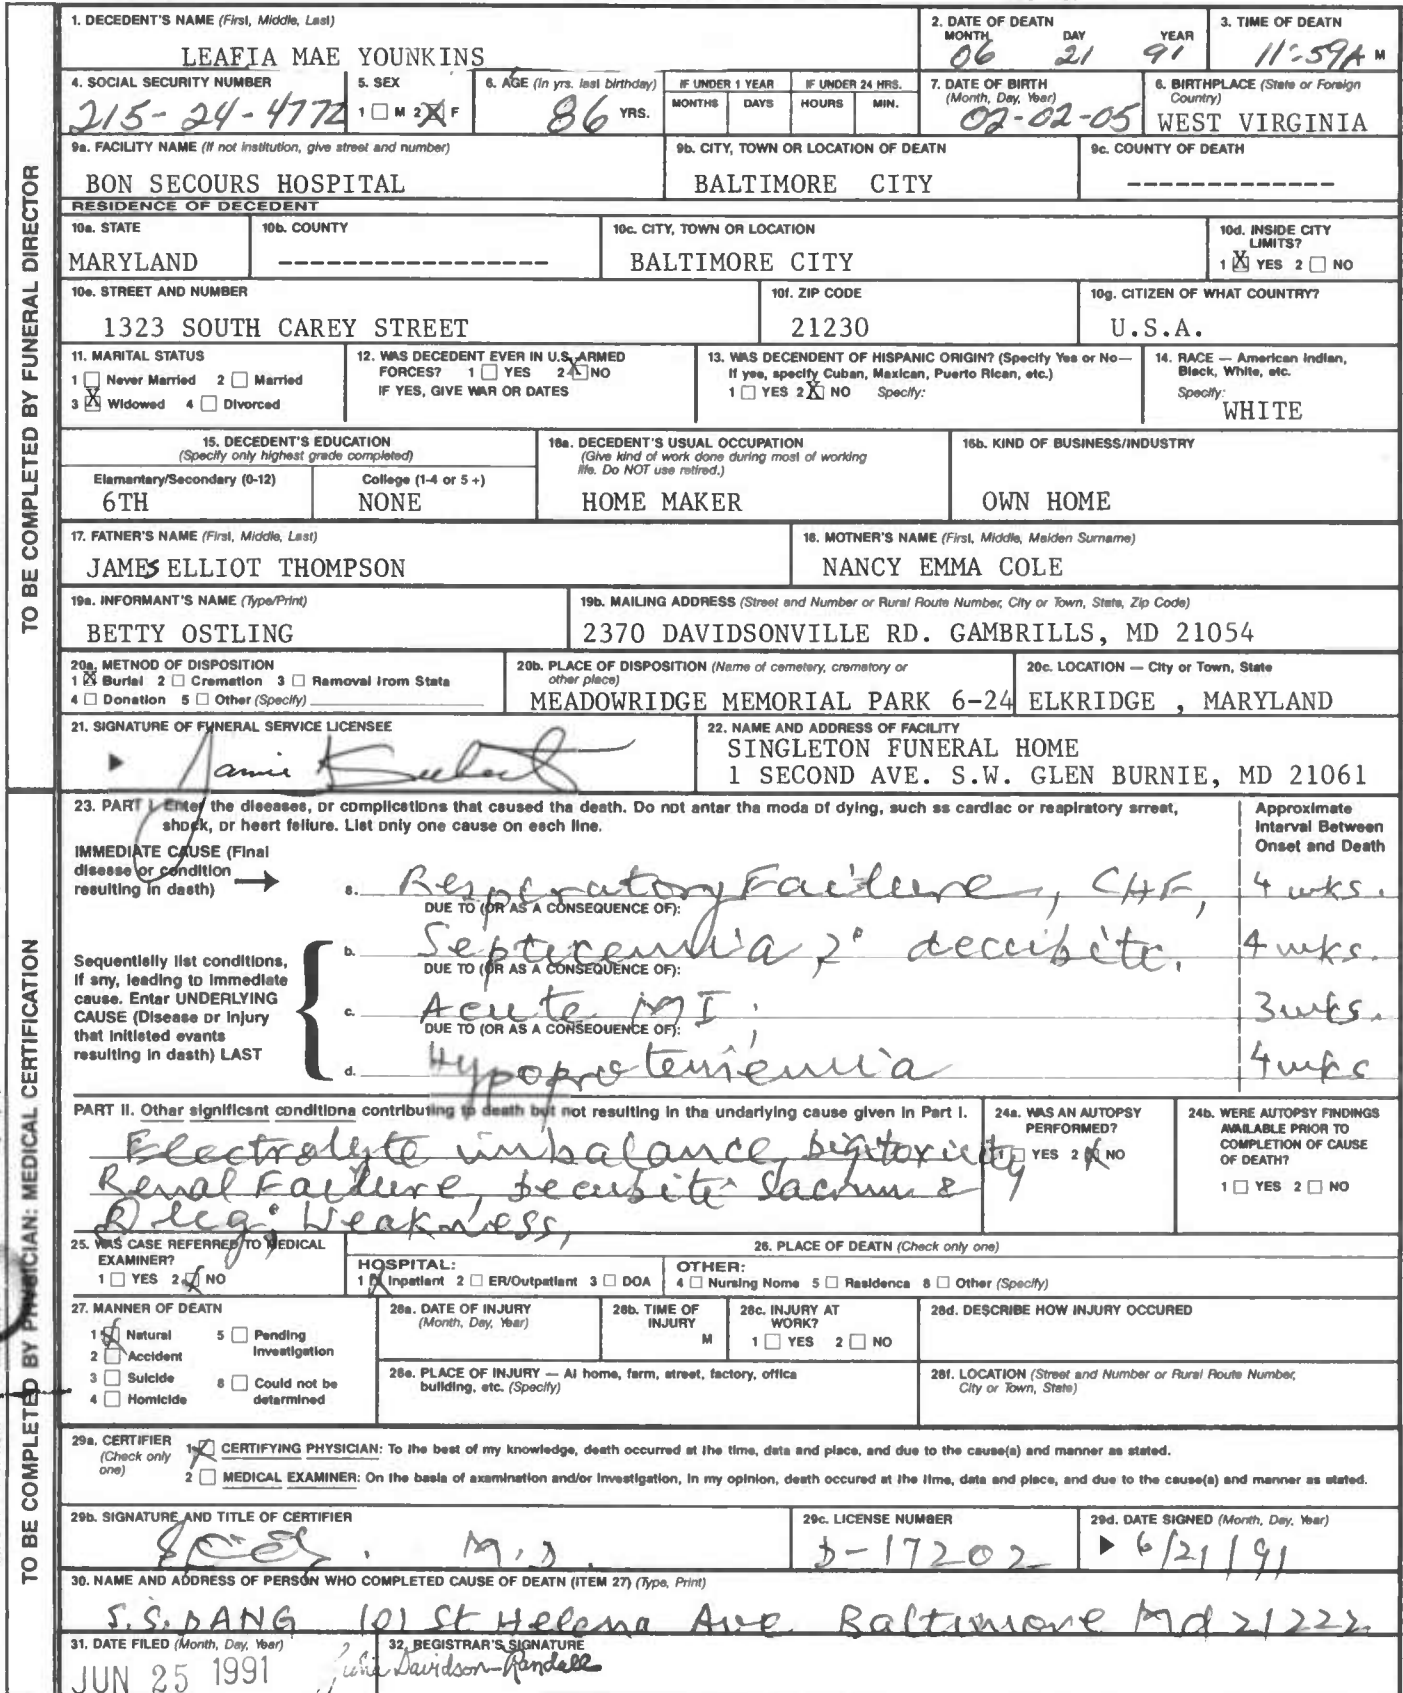 1. DECEDENT'S NAME (First, Middle, Last)
LEAFIA MAE YOUNKINS
2. DATE OF DEATH
MONTH DAY YEAR
06 21 91
3. TIME OF DEATH
11:59A M
4. SOCIAL SECURITY NUMBER
215-24-4772
5. SEX
1 M 2 X F
6. AGE (In yrs. last birthday)
86 YRS.
IF UNDER 1 YEAR
MONTHS DAYS
IF UNDER 24 HRS.
HOURS MIN.
7. DATE OF BIRTH
(Month, Day, Year)
02-02-05
8. BIRTHPLACE (State or Foreign
Country)
WEST VIRGINIA
9a. FACILITY NAME (If not institution, give street and number)
BON SECOURS HOSPITAL
9b. CITY, TOWN OR LOCATION OF DEATH
BALTIMORE CITY
9c. COUNTY OF DEATH
--------------
RESIDENCE OF DECEDENT
10a. STATE
MARYLAND
10b. COUNTY
------------------
10c. CITY, TOWN OR LOCATION
BALTIMORE CITY
10d. INSIDE CITY
LIMITS?
1 X YES 2 NO
10e. STREET AND NUMBER
1323 SOUTH CAREY STREET
10f. ZIP CODE
21230
10g. CITIZEN OF WHAT COUNTRY?
U.S.A.
11. MARITAL STATUS
1 Never Married 2 Married
3 X Widowed 4 Divorced
12. WAS DECEDENT EVER IN U.S. ARMED
FORCES? 1 YES 2 X NO
IF YES, GIVE WAR OR DATES
13. WAS DECENDENT OF HISPANIC ORIGIN? (Specify Yes or No—
If yes, specify Cuban, Mexican, Puerto Rican, etc.)
1 YES 2 X NO Specify:
14. RACE — American Indian,
Black, White, etc.
Specify:
WHITE
15. DECEDENT'S EDUCATION
(Specify only highest grade completed)
Elementary/Secondary (0-12)
6TH
College (1-4 or 5 +)
NONE
16a. DECEDENT'S USUAL OCCUPATION
(Give kind of work done during most of working
life. Do NOT use retired.)
HOME MAKER
16b. KIND OF BUSINESS/INDUSTRY
OWN HOME
17. FATHER'S NAME (First, Middle, Last)
JAMES ELLIOT THOMPSON
18. MOTHER'S NAME (First, Middle, Maiden Surname)
NANCY EMMA COLE
19a. INFORMANT'S NAME (Type/Print)
BETTY OSTLING
19b. MAILING ADDRESS (Street and Number or Rural Route Number, City or Town, State, Zip Code)
2370 DAVIDSONVILLE RD. GAMBRILLS, MD 21054
20a. METHOD OF DISPOSITION
1 X Burial 2 Cremation 3 Removal from State
4 Donation 5 Other (Specify)
20b. PLACE OF DISPOSITION (Name of cemetery, crematory or
other place)
MEADOWRIDGE MEMORIAL PARK 6-24
20c. LOCATION — City or Town, State
ELKRIDGE , MARYLAND
21. SIGNATURE OF FUNERAL SERVICE LICENSEE
22. NAME AND ADDRESS OF FACILITY
SINGLETON FUNERAL HOME
1 SECOND AVE. S.W. GLEN BURNIE, MD 21061
TO BE COMPLETED BY FUNERAL DIRECTOR
23. PART I. Enter the diseases, or complications that caused the death. Do not enter the mode of dying, such as cardiac or respiratory arrest,
shock, or heart failure. List only one cause on each line.
Approximate
Interval Between
Onset and Death
IMMEDIATE CAUSE (Final
disease or condition
resulting in death)
a. Respiratory Failure, CHF, 4 wks.
DUE TO (OR AS A CONSEQUENCE OF):
b. Septicemia 2° decubite. 4 wks.
DUE TO (OR AS A CONSEQUENCE OF):
Sequentially list conditions,
if any, leading to immediate
cause. Enter UNDERLYING
CAUSE (Disease or injury
that initiated events
resulting in death) LAST
c. Acute MI, 3 wks.
DUE TO (OR AS A CONSEQUENCE OF):
d. Hypoproteniemia 4 wks
PART II. Other significant conditions contributing to death but not resulting in the underlying cause given in Part I.
Electrolyte imbalance, Digitoxicity
Renal Failure, Decubite Sacrum &
Leg; Weakness,
24a. WAS AN AUTOPSY
PERFORMED?
1 YES 2 X NO
24b. WERE AUTOPSY FINDINGS
AVAILABLE PRIOR TO
COMPLETION OF CAUSE
OF DEATH?
1 YES 2 NO
25. WAS CASE REFERRED TO MEDICAL
EXAMINER?
1 YES 2 NO
26. PLACE OF DEATH (Check only one)
HOSPITAL:
1 X Inpatient 2 ER/Outpatient 3 DOA
OTHER:
4 Nursing Home 5 Residence 6 Other (Specify)
27. MANNER OF DEATH
1 Natural 5 Pending
Investigation
2 Accident
3 Suicide 6 Could not be
4 Homicide determined
28a. DATE OF INJURY
(Month, Day, Year)
28b. TIME OF
INJURY
M
28c. INJURY AT
WORK?
1 YES 2 NO
28d. DESCRIBE HOW INJURY OCCURED
28e. PLACE OF INJURY — At home, farm, street, factory, office
building, etc. (Specify)
28f. LOCATION (Street and Number or Rural Route Number,
City or Town, State)
29a. CERTIFIER
(Check only
one)
1 CERTIFYING PHYSICIAN: To the best of my knowledge, death occurred at the time, date and place, and due to the cause(s) and manner as stated.
2 MEDICAL EXAMINER: On the basis of examination and/or investigation, in my opinion, death occured at the time, date and place, and due to the cause(s) and manner as stated.
29b. SIGNATURE AND TITLE OF CERTIFIER
M.D.
29c. LICENSE NUMBER
D-17202
29d. DATE SIGNED (Month, Day, Year)
6/21/91
30. NAME AND ADDRESS OF PERSON WHO COMPLETED CAUSE OF DEATH (ITEM 27) (Type, Print)
S.S. DANG 101 St Helena Ave Baltimore Md 21222
31. DATE FILED (Month, Day, Year)
JUN 25 1991
32. REGISTRAR'S SIGNATURE
Julia Davidson-Randall
TO BE COMPLETED BY PHYSICIAN: MEDICAL CERTIFICATION